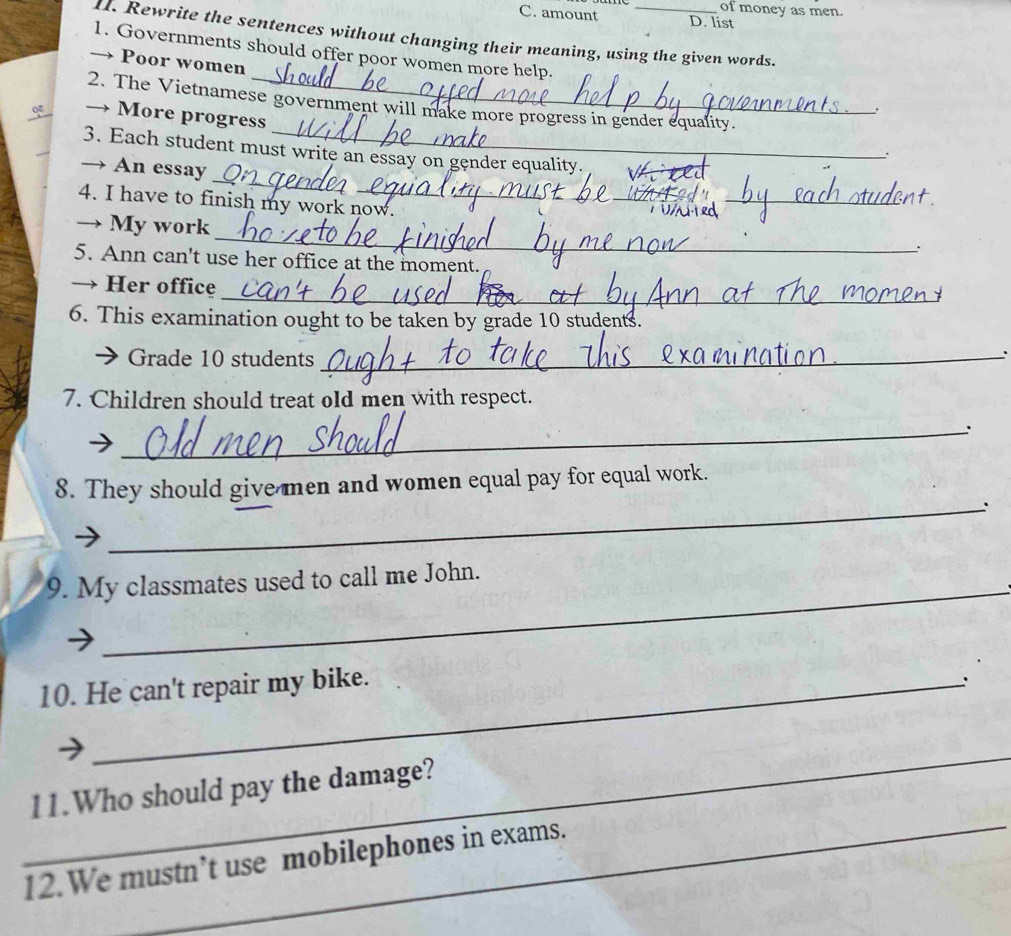 of money as men.
C. amount D. list
II. Rewrite the sentences without changing their meaning, using the given words.
1. Governments should offer poor women more help.
→ Poor women should be offed more help by governments.
2. The Vietnamese government will make more progress in gender equality.
→ More progress will be make
3. Each student must write an essay on gender equality.
→ An essay On gender equality must be by each student.
4. I have to finish my work now.
→ My work have to be finished by me now.
5. Ann can't use her office at the moment.
→ Her office can't be used by Ann at The moment
6. This examination ought to be taken by grade 10 students.
→ Grade 10 students ought to take This examination.
7. Children should treat old men with respect.
→ Old men should
8. They should give men and women equal pay for equal work.
→
9. My classmates used to call me John.
→
10. He can't repair my bike.
→
11.Who should pay the damage?
12.We mustn't use mobilephones in exams.